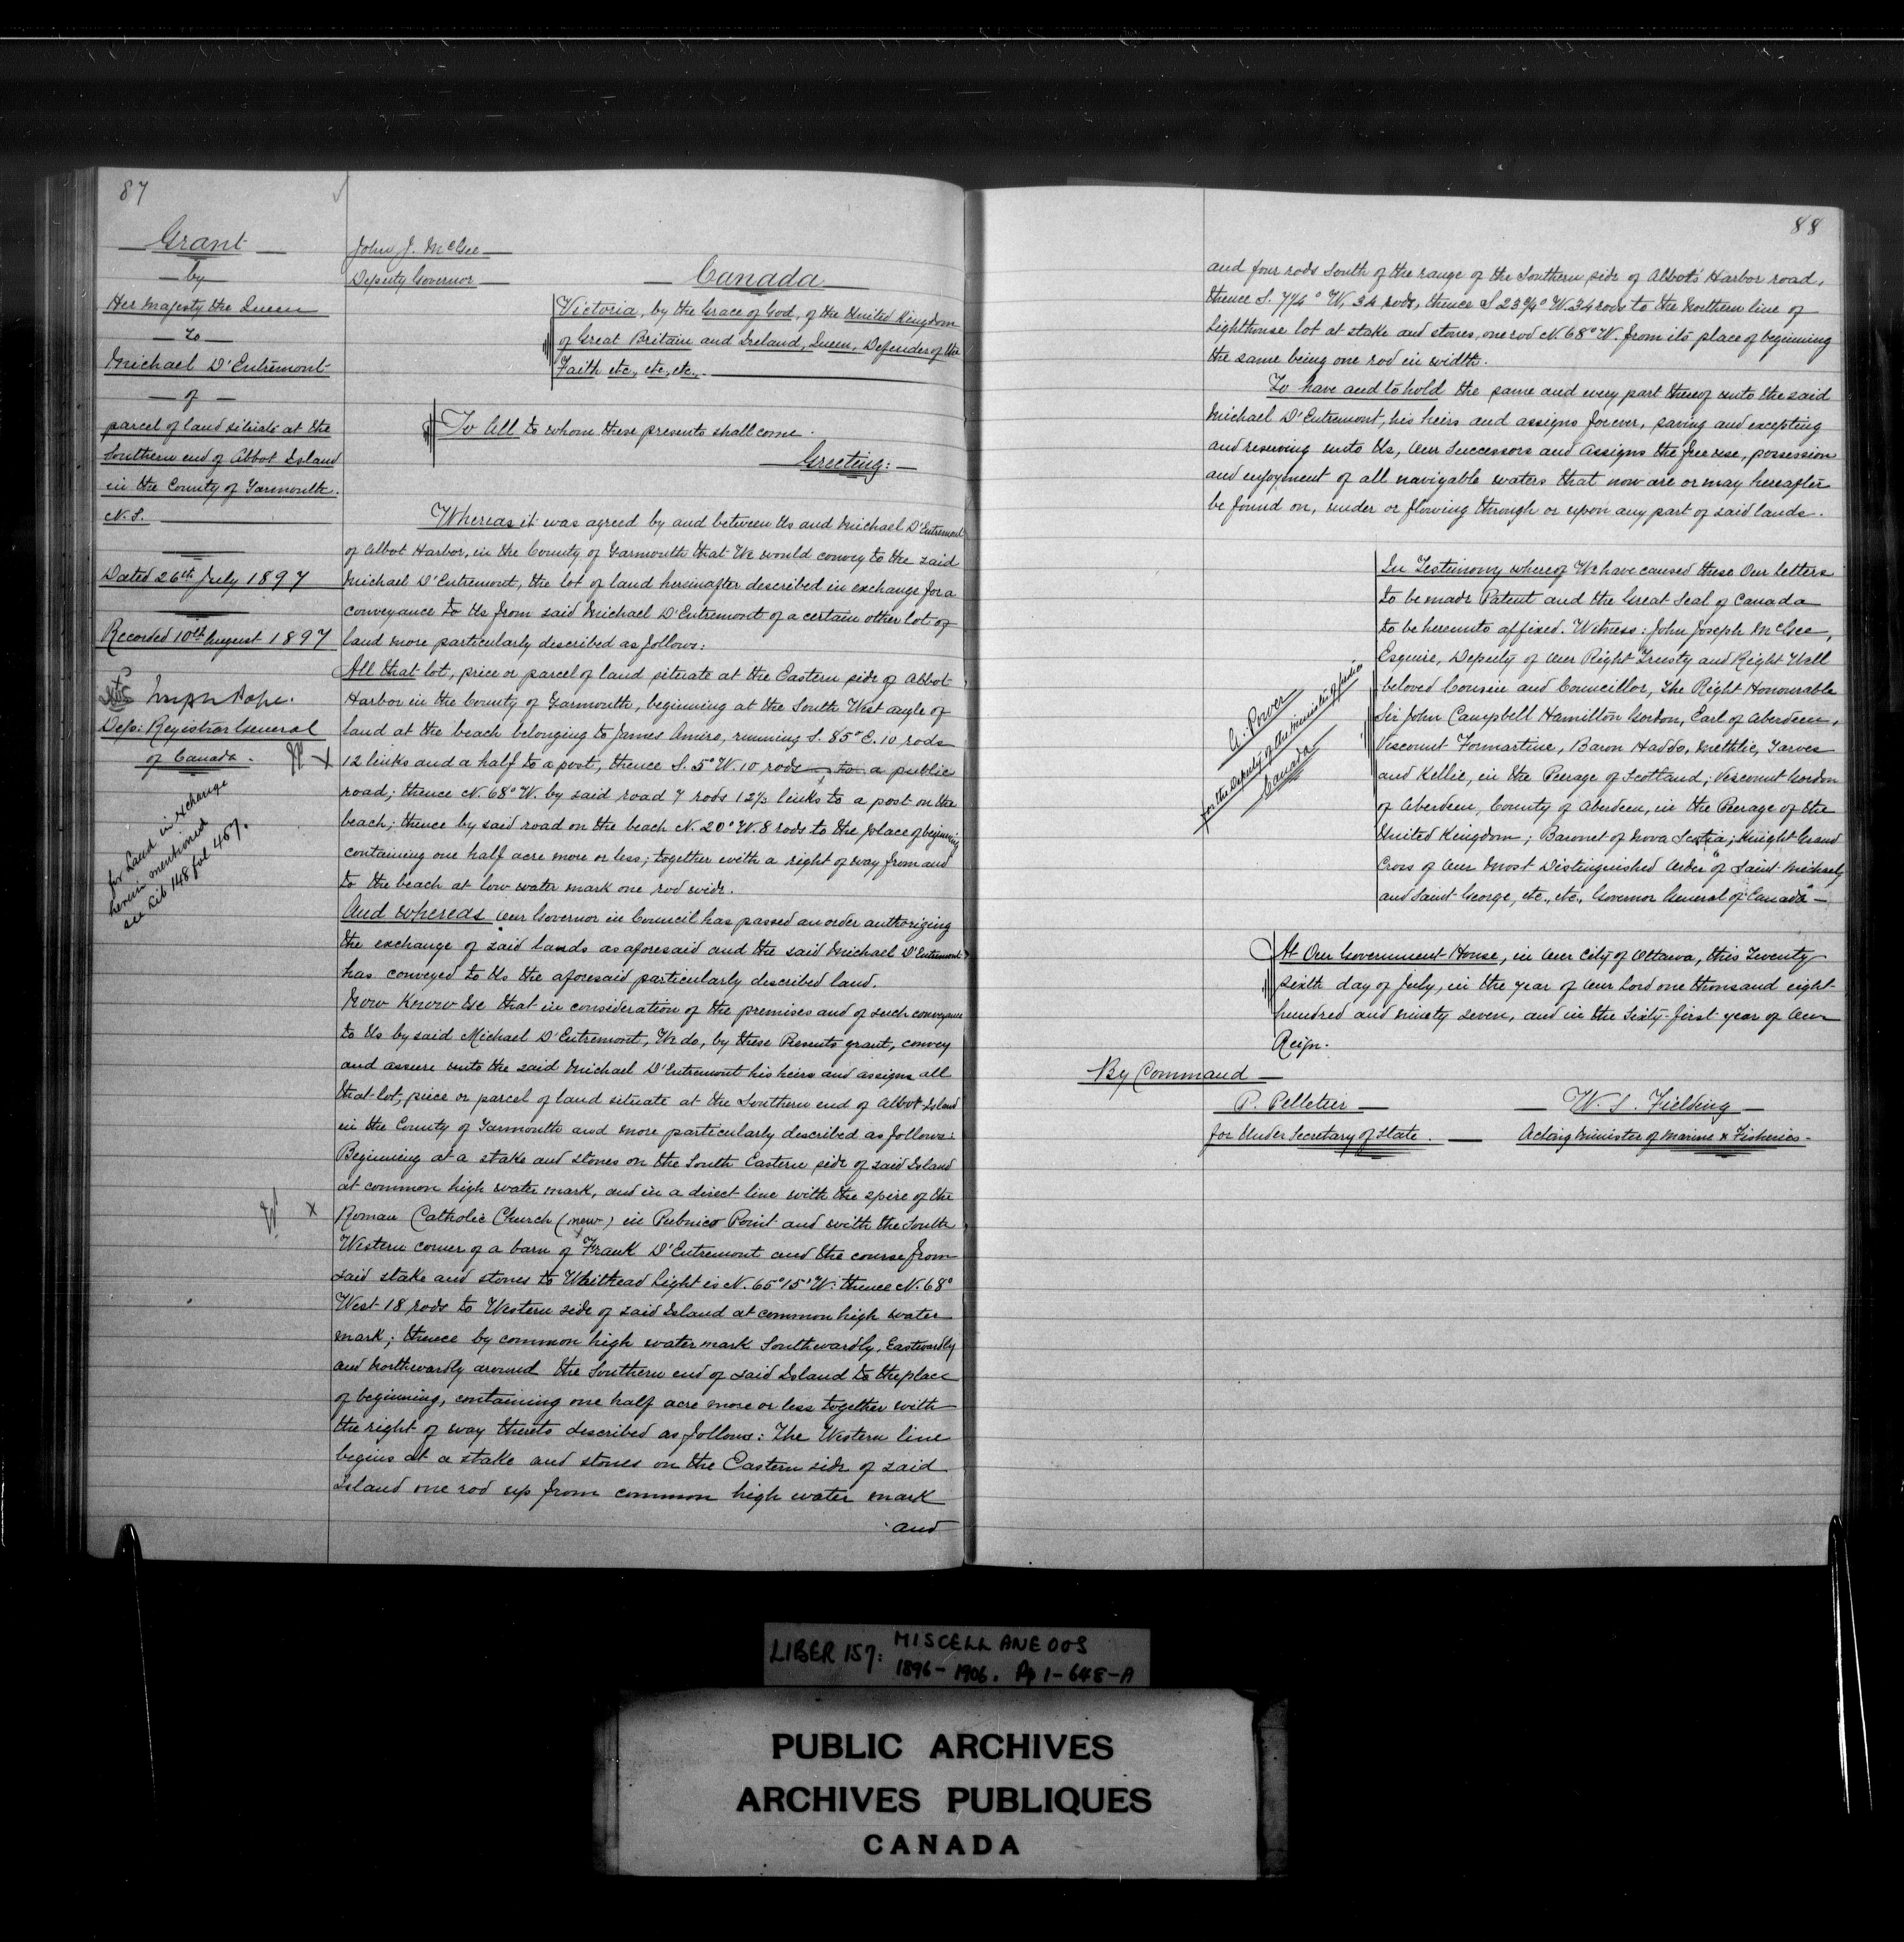 87
Grant
by
Her Majesty the Queen
To
Michael D'Entremont
of
parcel of land situate at the
Southern end of Abbot Island
in the County of Yarmouth.
N.S.
Dated 26th July 1897
Recorded 10th August 1897
Joseph Pope.
Dep: Registrar General
of Canada.
for Land in exchange
herein mentioned
see Lib 148 fol 457.
John J. McGee
Deputy Governor
Canada
Victoria, by the Grace of God, of the United Kingdom
of Great Britain and Ireland, Queen, Defender of the
Faith etc., etc., etc.,
To All to whom these presents shall come.
Greeting:
Whereas it was agreed by and between Us and Michael D'Entremont
of Abbot Harbor, in the County of Yarmouth that We would convey to the said
Michael D'Entremont, the lot of land hereinafter described in exchange for a
conveyance to Us from said Michael D'Entremont of a certain other lot of
land more particularly described as follows:
All that lot, price or parcel of land situate at the Eastern side of Abbot
Harbor in the County of Yarmouth, beginning at the South West angle of
land at the beach belonging to James Amiro, running S. 85° E. 10 rods
12 links and a half to a post, thence S. 5° W. 10 rods, to a public
road; thence N. 68° W. by said road 7 rods 12½ links to a post on the
beach; thence by said road on the beach N. 20° W. 8 rods to the place of beginning
containing one half acre more or less; together with a right of way from and
to the beach at low water mark one rod wide.
And whereas Our Governor in Council has passed an order authorizing
the exchange of said lands as aforesaid and the said Michael D'Entremont
has conveyed to Us the aforesaid particularly described land.
Now Know Ye that in consideration of the premises and of such conveyance
to Us by said Michael D'Entremont, We do, by these Presents grant, convey
and assure unto the said Michael D'Entremont his heirs and assigns all
that lot, piece or parcel of land situate at the Southern end of Abbot Island
in the County of Yarmouth and more particularly described as follows:
Beginning at a stake and stones on the South Eastern side of said Island
at common high water mark, and in a direct line with the spire of the
x Roman Catholic Church (new) in Pubnico Point and with the South
Western corner of a barn of Frank D'Entremont and the course from
said stake and stones to Whitehead Light is N. 65° 15' W: thence N. 68°
West 18 rods to Western side of said Island at common high water
mark; thence by common high water mark Southwardly, Eastwardly
and Northwardly around the Southern end of said Island to the place
of beginning, containing one half acre more or less together with
the right of way thereto described as follows: The Western line
begins at a stake and stones on the Eastern side of said
Island one rod up from common high water mark
and
88
and four rods South of the range of the Southern side of Abbot's Harbor road,
thence S. 7¼° W, 34 rods, thence S 23¾° W. 34 rods to the Northern line of
Lighthouse lot at stake and stones, one rod N. 68° W. from its place of beginning
the same being one rod in width.
To have and to hold the same and every part thereof unto the said
Michael D'Entremont, his heirs and assigns forever, saving and excepting
and reserving unto Us, Our Successors and Assigns the free use, possession
and enjoyment of all navigable waters that now are or may hereafter
be found on, under or flowing through or upon any part of said lands.
A. Power
for the Deputy of the Minister of Justice
Canada
In Testimony whereof We have caused these Our Letters
to be made Patent and the Great Seal of Canada
to be hereunto affixed. Witness: John Joseph McGee,
Esquire, Deputy of Our Right Trusty and Right Well
beloved Cousin and Councillor, The Right Honourable
Sir John Campbell Hamilton Gordon, Earl of Aberdeen,
Viscount Formartine, Baron Haddo, Methlic, Tarves
and Kellie, in the Peerage of Scotland; Viscount Gordon
of Aberdeen, County of Aberdeen, in the Peerage of the
United Kingdom; Baronet of Nova Scotia; Knight Grand
Cross of Our Most Distinguished Order of Saint Michael
and Saint George, etc., etc., Governor General of Canada
At Our Government House, in Our City of Ottawa, this Twenty
sixth day of July, in the year of Our Lord one thousand eight
hundred and ninety seven, and in the Sixty-first year of Our
Reign.
By Command
P. Pelletier
for Under Secretary of State.
W. S. Fielding
Acting Minister of Marine & Fisheries.
LIBER 157: MISCELLANEOUS
1896-1906. Pp 1-648-A
PUBLIC ARCHIVES
ARCHIVES PUBLIQUES
CANADA